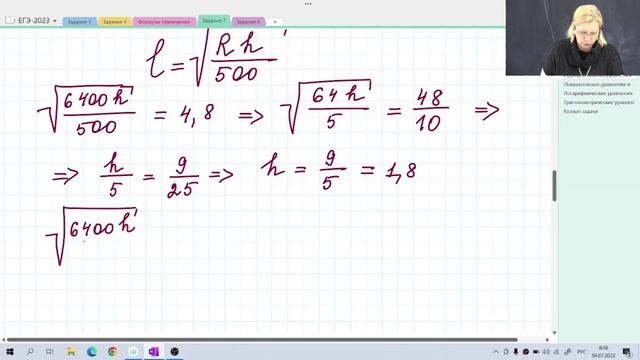 ЕГЭ-2023
Задание 1 Задание 4 Формулы приведения Задание 7 Задание 6
l = √(Rh/500)
√(6400h/500) = 4,8 => √(64h/5) = 48/10 =>
=> h/5 = 9/25 => h = 9/5 = 1,8
√(6400h
Показательные уравнения и
Логарифмические уравнения
Тригонометрические уравнения
Разные задачи
РУС
8:46
04.07.2022